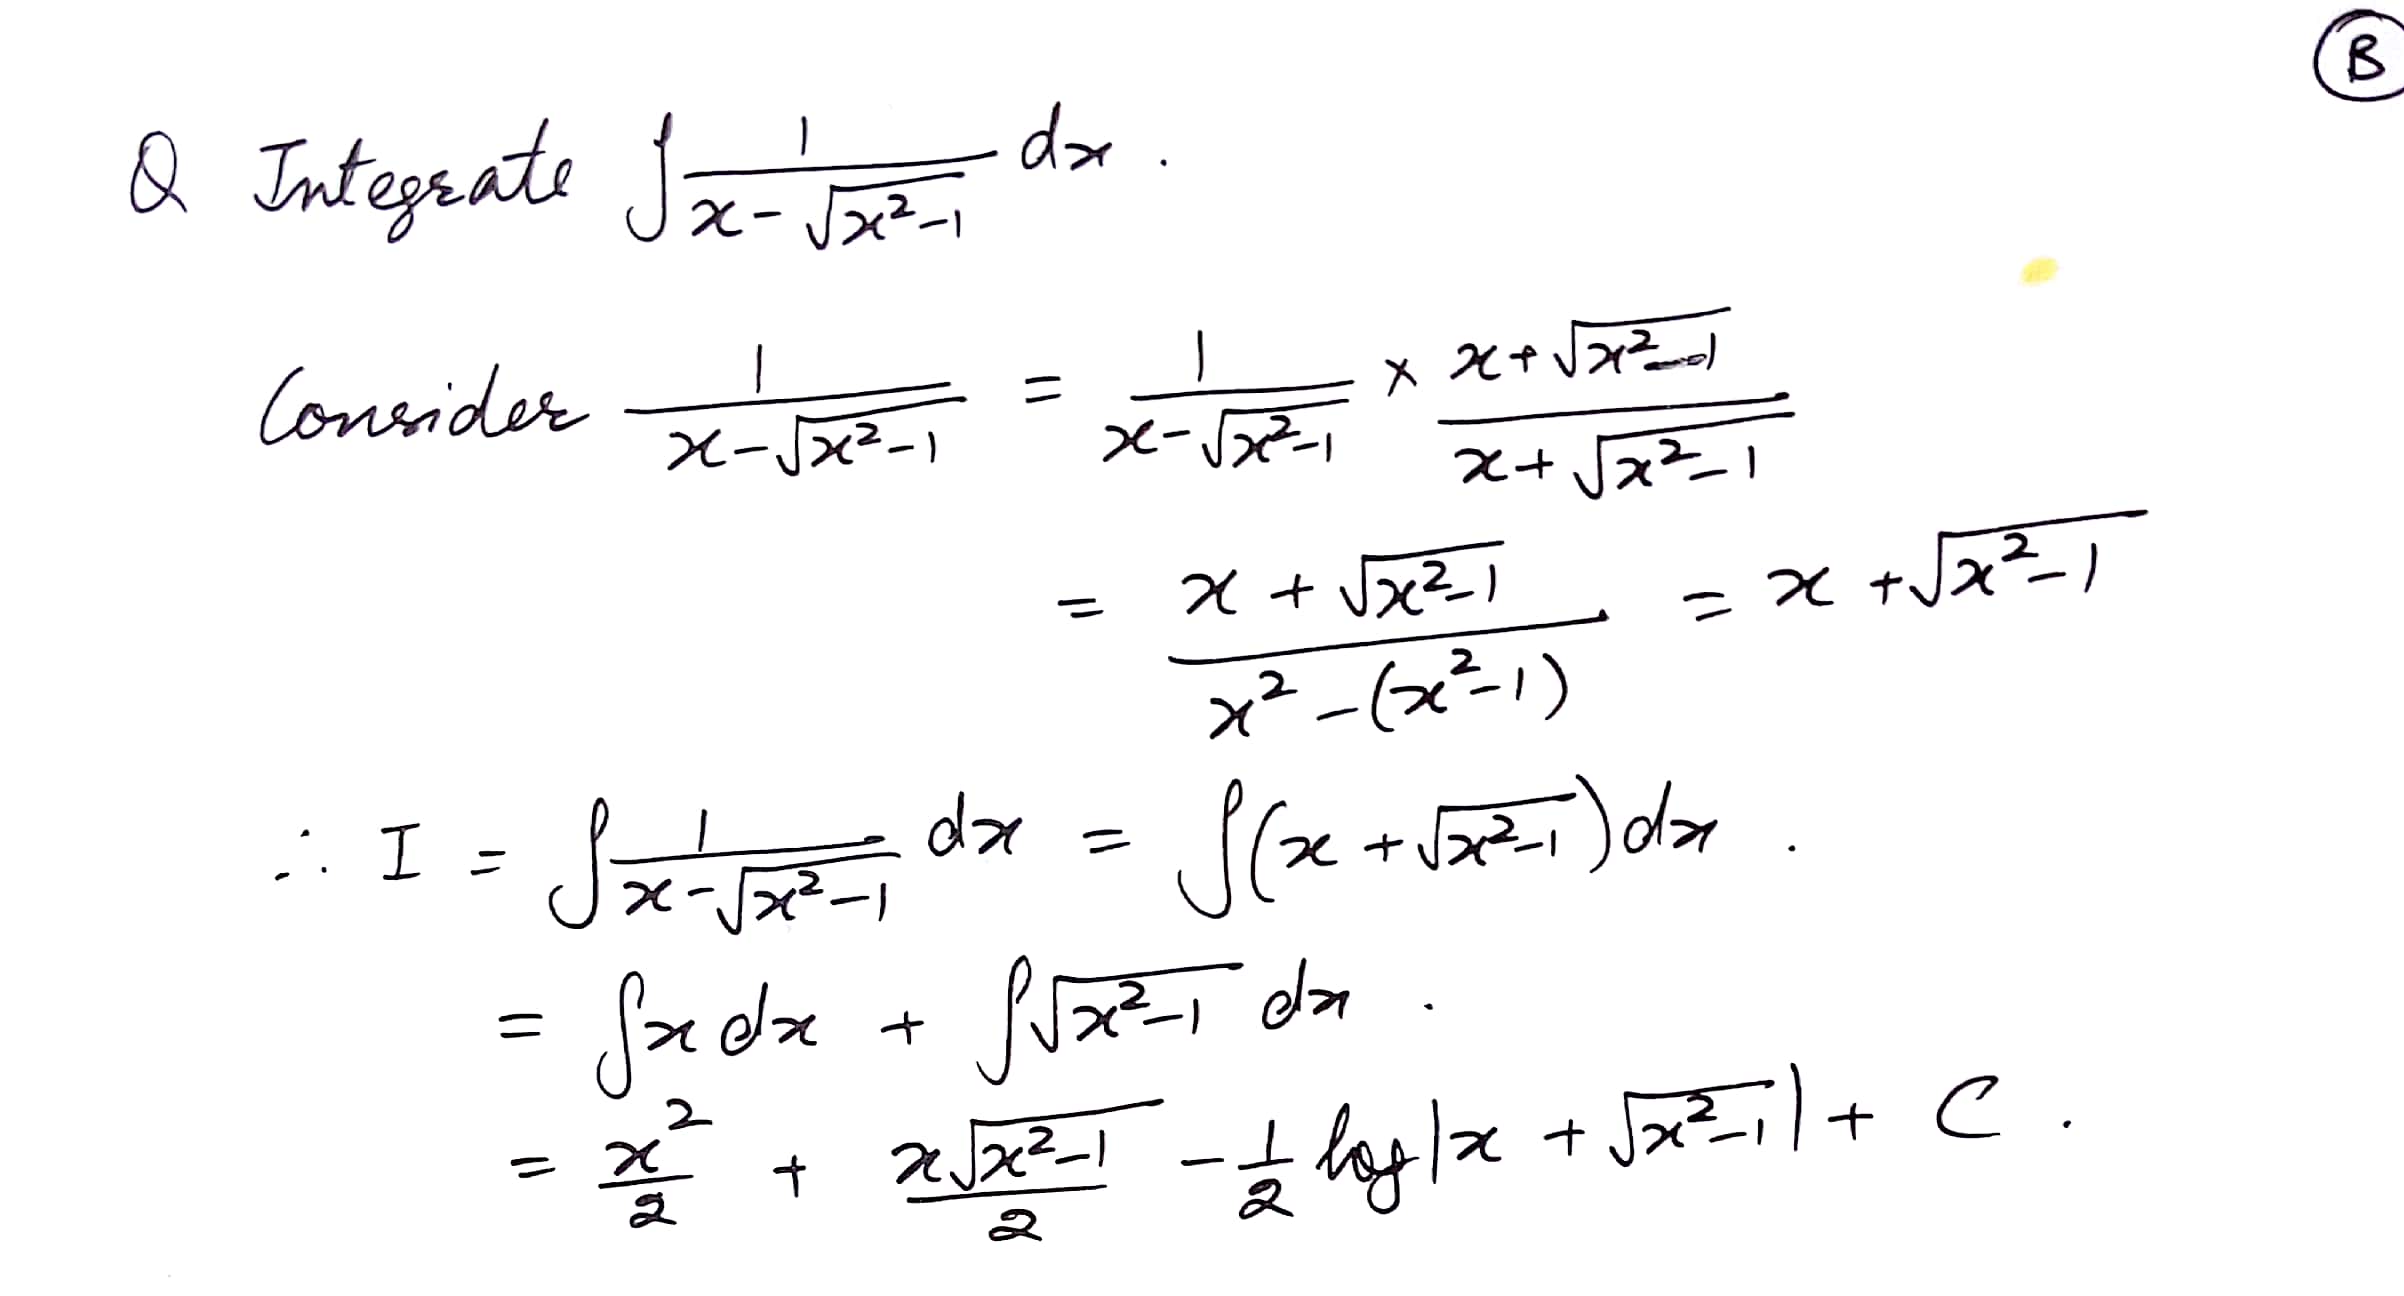 B
Q Integrate ∫ 1/(x-√(x²-1)) dx .
Consider 1/(x-√(x²-1)) = 1/(x-√(x²-1)) × (x+√(x²-1))/(x+√(x²-1))
= (x + √(x²-1))/(x² - (x²-1)) . = x + √(x²-1)
∴ I = ∫ 1/(x-√(x²-1)) dx = ∫(x + √(x²-1)) dx .
= ∫x dx + ∫√(x²-1) dx .
= x²/2 + x√(x²-1)/2 - 1/2 log|x + √(x²-1)| + C .